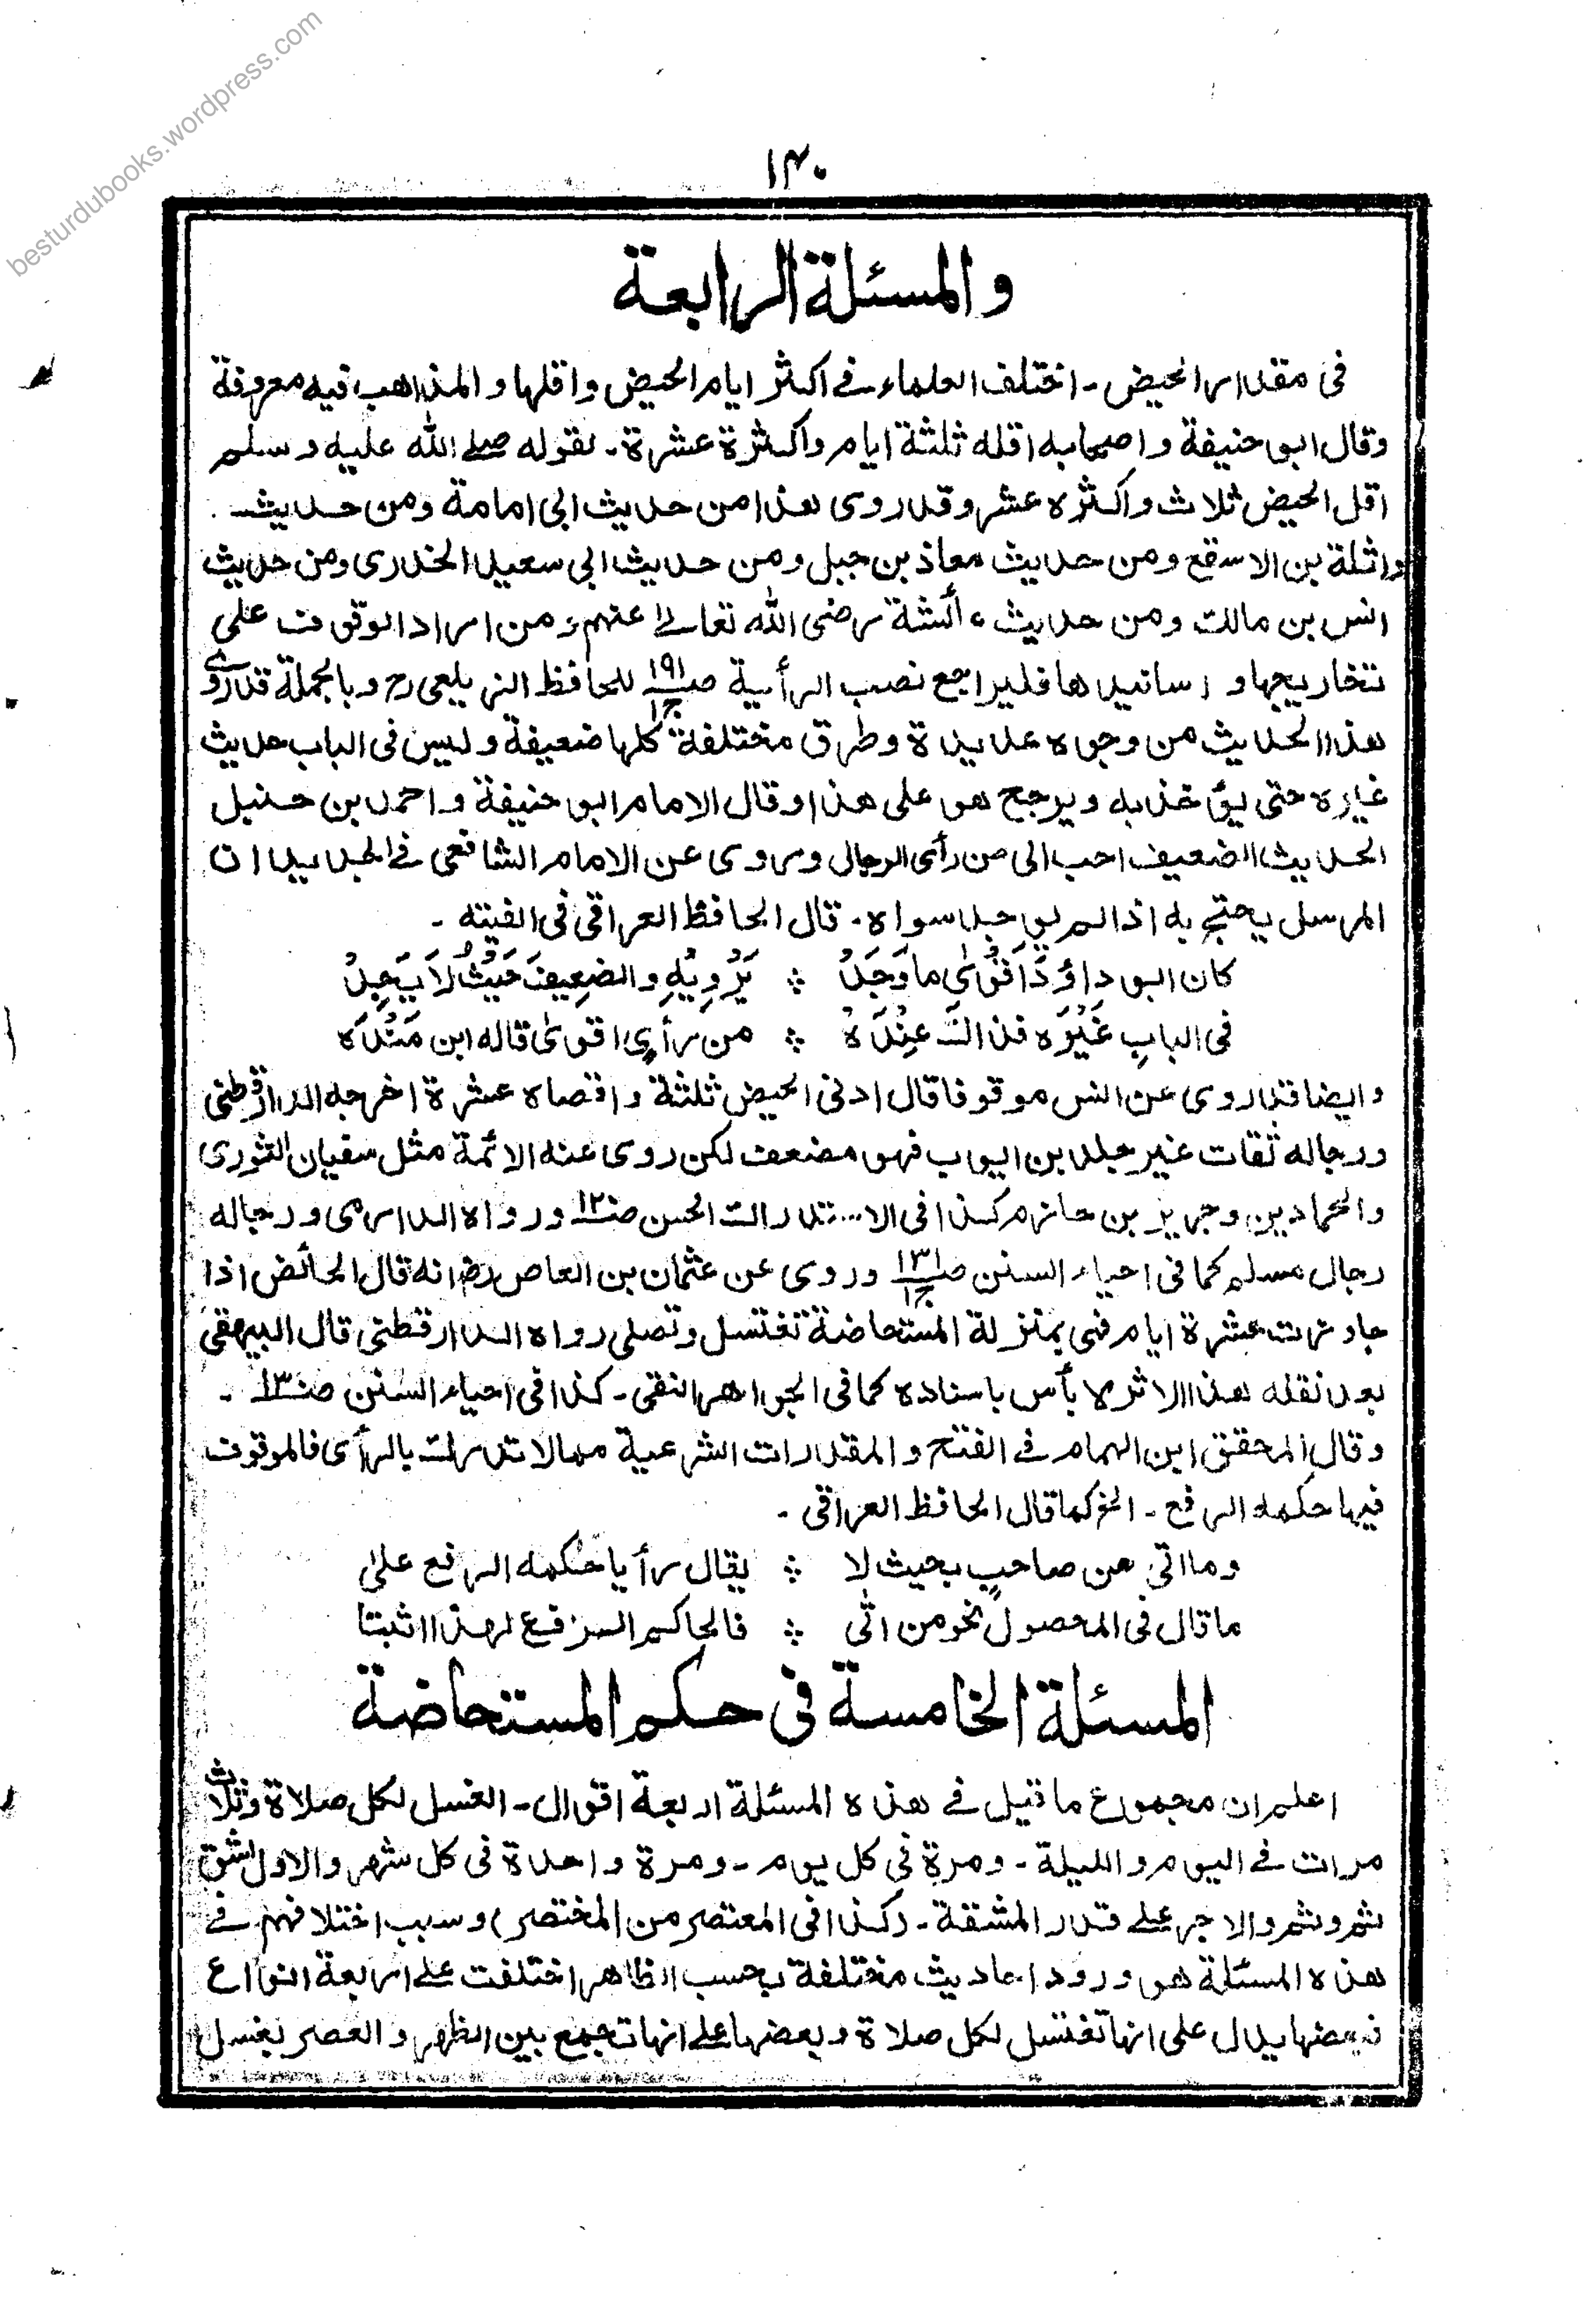 besturdubooks.wordpress.com
۱۴۰
والمسئلة الرابعة
فى مقدار الحيض - اختلف العلماء فى اكثر ايام الحيض واقلها والمذاهب فيه معروفة
وقال ابو حنيفة واصحابه اقله ثلثة ايام واكثرة عشرة - لقوله صلے الله عليه وسلم
اقل الحيض ثلاث واكثره عشر وقد روى هذا من حديث ابى امامة ومن حديث
واثلة بن الاسقع ومن حديث معاذ بن جبل ومن حديث ابى سعيد الخدرى ومن حديث
انس بن مالك ومن حديث عائشة رضى الله تعالےٰ عنهم ومن اراد الوقوف على
تخاريجها و اسانيدها فليراجع نصب الرأية صـ۱۹۱ ج۱ للحافظ الزيلعى رح وبالجملة قد روى
هذا الحديث من وجوه عديدة وطرق مختلفة كلها ضعيفة وليس فى الباب حديث
غيره حتى يؤخذ به ويرجح هو على هذا وقال الامام ابو حنيفة واحمد بن حنبل
الحديث الضعيف احب الى من رأى الرجال وروى عن الامام الشافعى فے الجديد ان
المرسل يحتج به اذا لم يوجد سواه - قال الحافظ العراقى فى الفيته -
كان ابو داؤد اَقْوٰى ما وَجَدْ ؞ يَرْوِيْهِ والضعِيفَ حَيْثُ لَا يَجِدْ
فى البابِ غَيْرَه فذاك عِنْدَهْ ؞ من رأىٍ اقوىٰ قاله ابن مَنْدَه
وايضا قد روى عن انس موقوفا قال ادنى الحيض ثلثة واقصاه عشرة اخرجه الدارقطنى
ورجاله ثقات غير جلد بن ايوب فهو مضعف لكن روى عنه الائمة مثل سفيان الثورى
والحمادين وجرير بن حازم كذا فى الا...تدراك الحسن صـ۱۲ ورواه الدارمى ورجاله
رجال مسلم كما فى احياء السنن صـ۱۳۱ ج۱ وروى عن عثمان بن العاص رض انه قال الحائض اذا
جاوزت عشرة ايام فهى بمنزلة المستحاضة تغتسل وتصلى رواه الدارقطنى قال البيهقى
بعد نقله هذا الاثر لا بأس باسناده كما فى الجواهر النقى - كذا فى احياء السنن صـ۱۳ -
وقال المحقق ابن الهمام فے الفتح والمقدرات الشرعية مما لا تدرك بالرأى فالموقوف
فيها حكمه الرفع - الخ كما قال الحافظ العراقى -
وما اتى عن صاحبٍ بحيث لا ؞ يقال رأيا حكمه الرفع علىٰ
ما قال فى المحصول نحو من اتٰى ؞ فالحاكم الرفع لهذا اثبتا
المسئلة الخامسة فى حكم المستحاضة
اعلم ان مجموع ما قيل فے هذه المسئلة اربعة اقوال - الغسل لكل صلاة وثلاث
مرات فے اليوم والليلة - ومرة فى كل يوم - ومرة واحدة فى كل شهر والاول اشق
ثم وثم والاجر علے قدر المشقة - (كذا فى المعتصر من المختصر) وسبب اختلافهم فے
هذه المسئلة هو ورود احاديث مختلفة بحسب الظاهر اختلفت علے اربعة انواع
فبعضها يدل على انها تغتسل لكل صلاة وبعضها علے انها تجمع بين الظهر والعصر بغسل